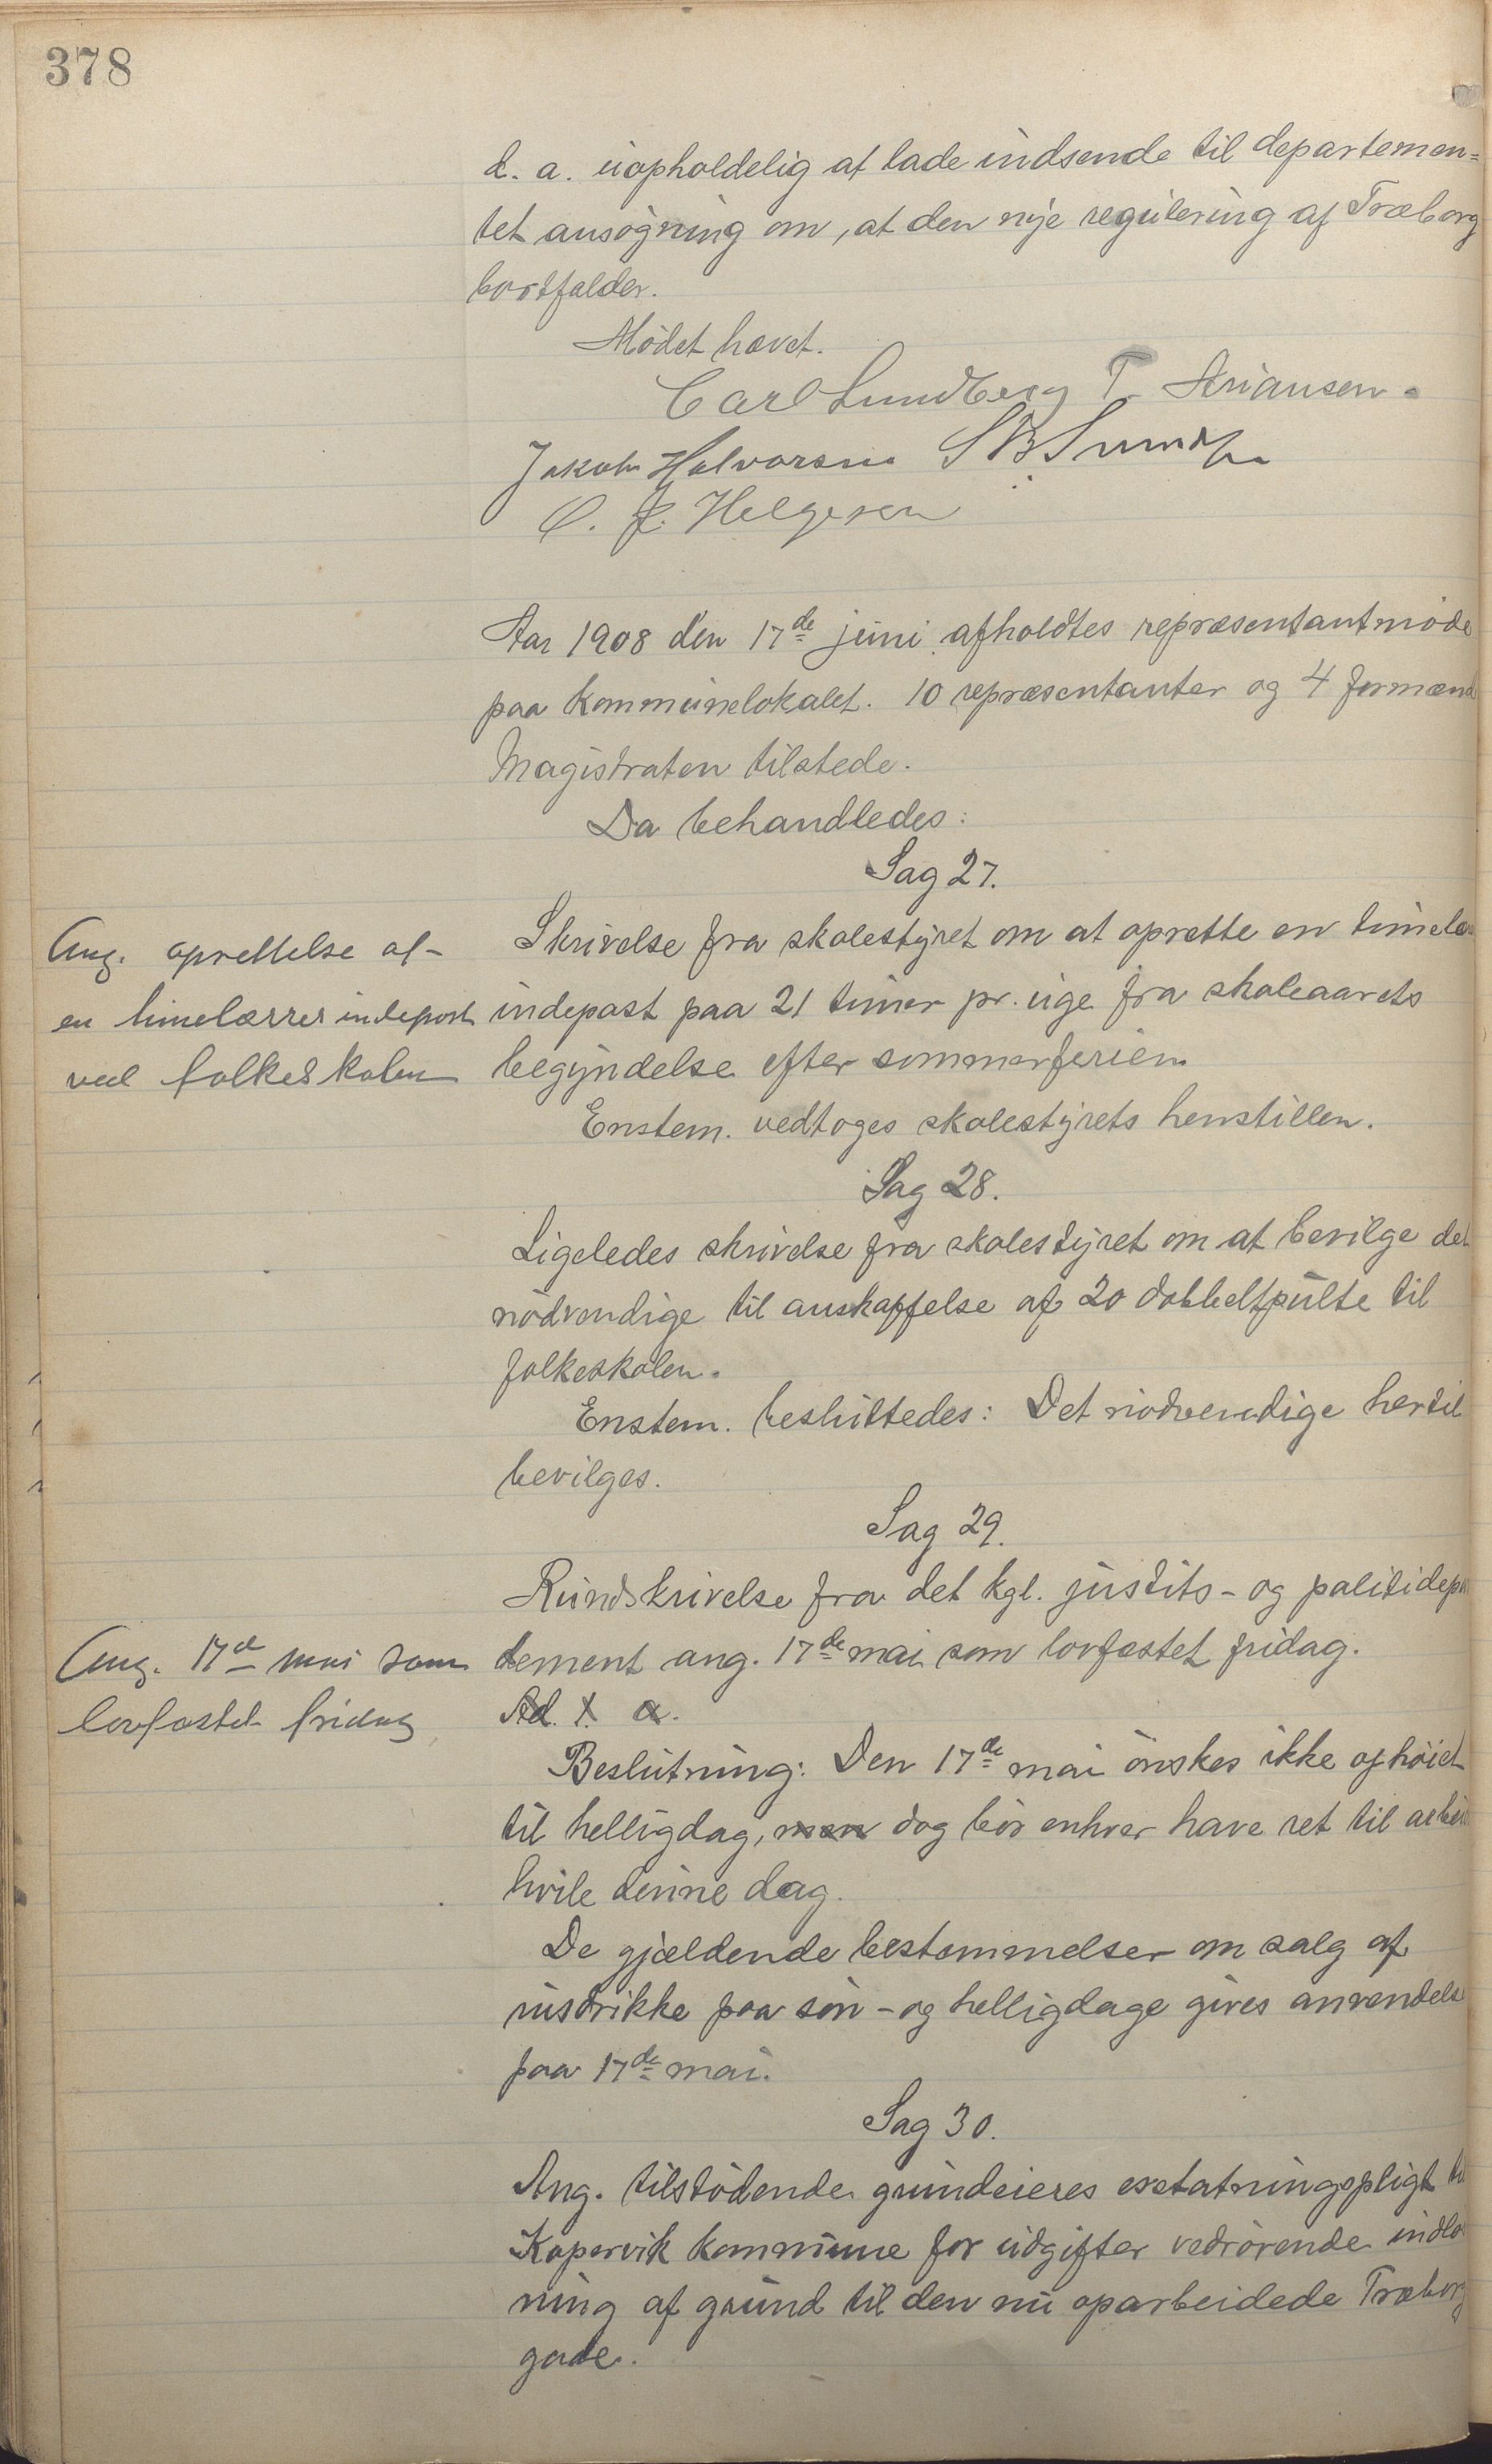 378
d. a. uopholdelig at lade indsende til departemen=
tet ansøgning om, at den nye regulering af Træborg
bortfalder.
Mødet hævet.
Carl Lundberg T. Ariansen.
Jakob Halvorsen S B Smith
O. J. Helgesen
Aar 1908 den 17de juni afholdtes repræsentantmøde
paa kommunelokalet. 10 repræsentanter og 4 formænd
Magistraten tilstede.
Da behandledes:
Sag 27.
Ang. oprettelse af
en timelærrerindepost
ved folkeskolen
Skrivelse fra skolestyret om at oprette en timelær
indepost paa 21 timer pr. uge fra skoleaarets
begyndelse efter sommerferien
Enstem. vedtoges skolestyrets henstillen.
Sag 28.
Ligeledes skrivelse fra skolestyret om at bevilge det
nødvendige til anskaffelse af 20 dobbeltpulte til
folkeskolen.
Enstem. besluttedes: Det nødvendige hertil
bevilges.
Sag 29.
Rundskrivelse fra det kgl. justits- og politidepar
Ang. 17de mai som
lovfæstet fridag
tement ang. 17de mai som lovfæstet fridag.
Ad. 1. a.
Beslutning: Den 17de mai ønskes ikke ophøiet
til helligdag, men dog bør enhver have ret til arbeid
hvile denne dag.
De gjældende bestemmelser om salg af
rusdrikke paa søn- og helligdage gives anvendelse
paa 17de mai.
Sag 30.
Ang. tilstødende grundeieres erstatningspligt til
Kopervik kommune for udgifter vedrørende indløs
ning af grund til den nu oparbeidede Træborg
gade.